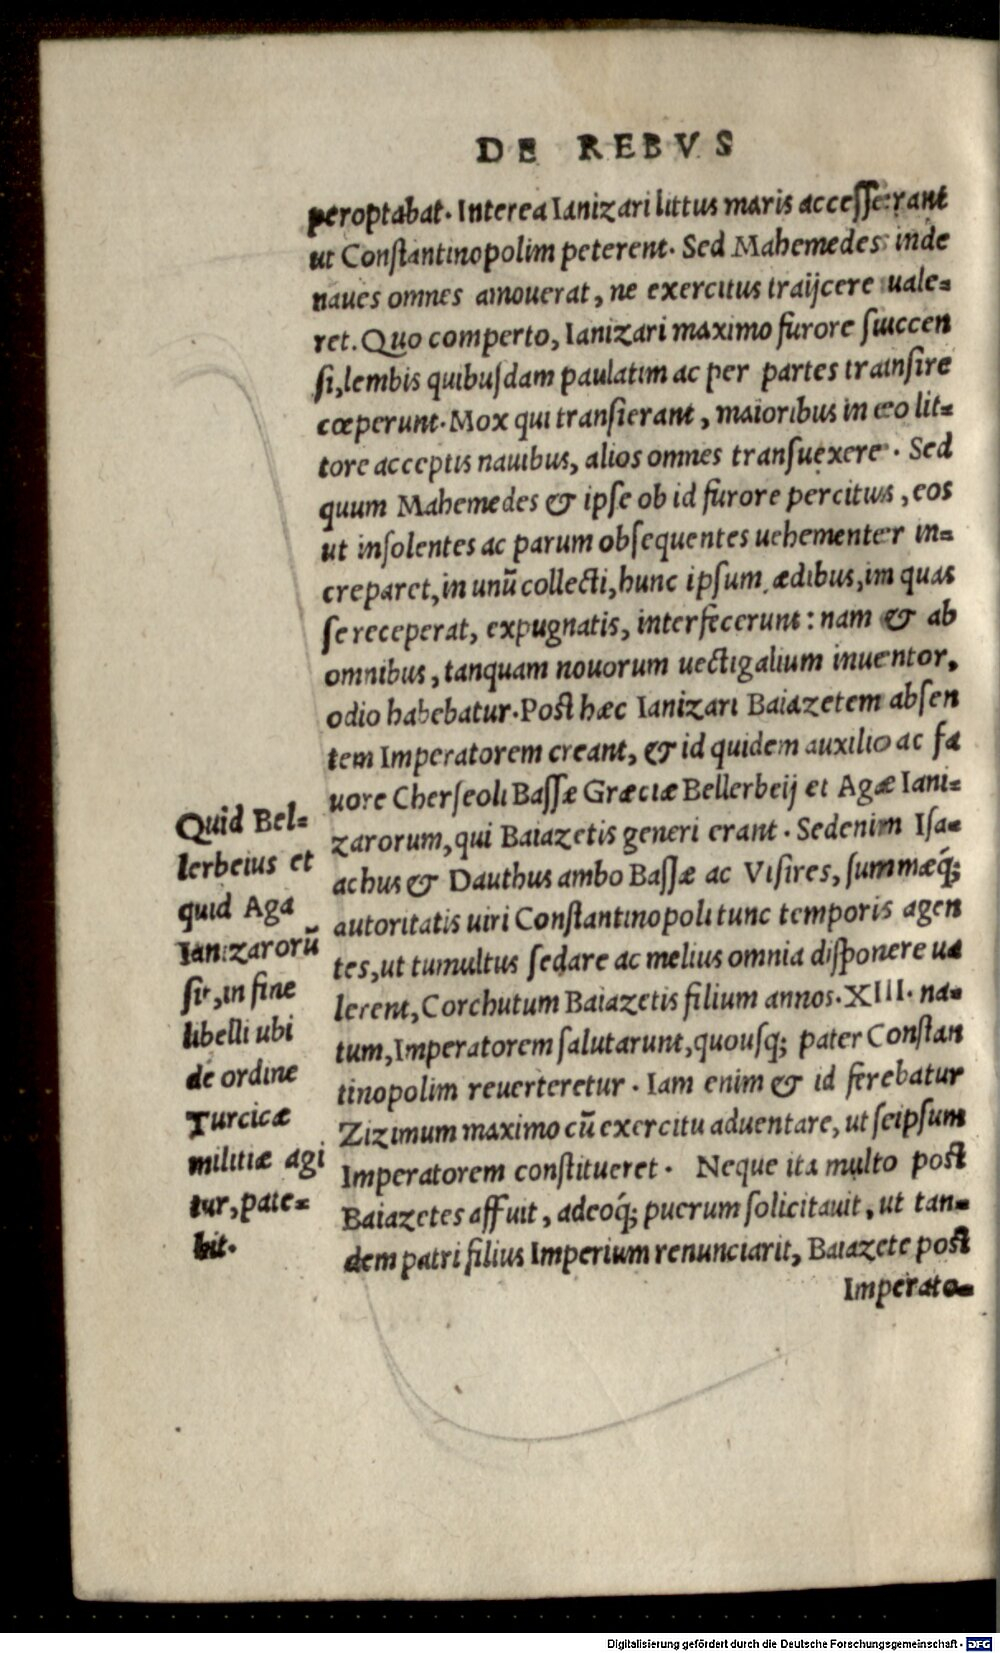 DE REBVS
peroptabat. Interea Ianizari littus maris accesserant
ut Constantinopolim peterent. Sed Mahemedes inde
naues omnes amouerat, ne exercitus traijcere uale=
ret. Quo comperto, Ianizari maximo furore succen
si, lembis quibusdam paulatim ac per partes transire
cœperunt. Mox qui transierant, maioribus in eo lit=
tore acceptis nauibus, alios omnes transuexere. Sed
quum Mahemedes & ipse ob id furore percitus, eos
ut insolentes ac parum obsequentes uehementer in=
creparet, in unū collecti, hunc ipsum ædibus, in quas
se receperat, expugnatis, interfecerunt: nam & ab
omnibus, tanquam nouorum uectigalium inuentor,
odio habebatur. Post hæc Ianizari Baiazetem absen
tem Imperatorem creant, & id quidem auxilio ac fa
uore Cherseoli Bassæ Græciæ Bellerbeij et Agæ Iani=
zarorum, qui Baiazetis generi erant. Sedenim Isa=
achus & Dauthus ambo Bassæ ac Visires, summæq́;
autoritatis uiri Constantinopoli tunc temporis agen
tes, ut tumultus sedare ac melius omnia disponere ua
lerent, Corchutum Baiazetis filium annos .XIII. na=
tum, Imperatorem salutarunt, quousq; pater Constan
tinopolim reuerteretur. Iam enim & id ferebatur
Zizimum maximo cū exercitu aduentare, ut seipsum
Imperatorem constitueret. Neque ita multo post
Baiazetes affuit, adeoq́; puerum solicitauit, ut tan=
dem patri filius Imperium renunciarit, Baiazete post
Imperato=
Quid Bel=
lerbeius et
quid Aga
Ianizarorū
sit, in fine
libelli ubi
de ordine
Turcicæ
militiæ agi
tur, pate=
bit.
Digitalisierung gefördert durch die Deutsche Forschungsgemeinschaft - DFG